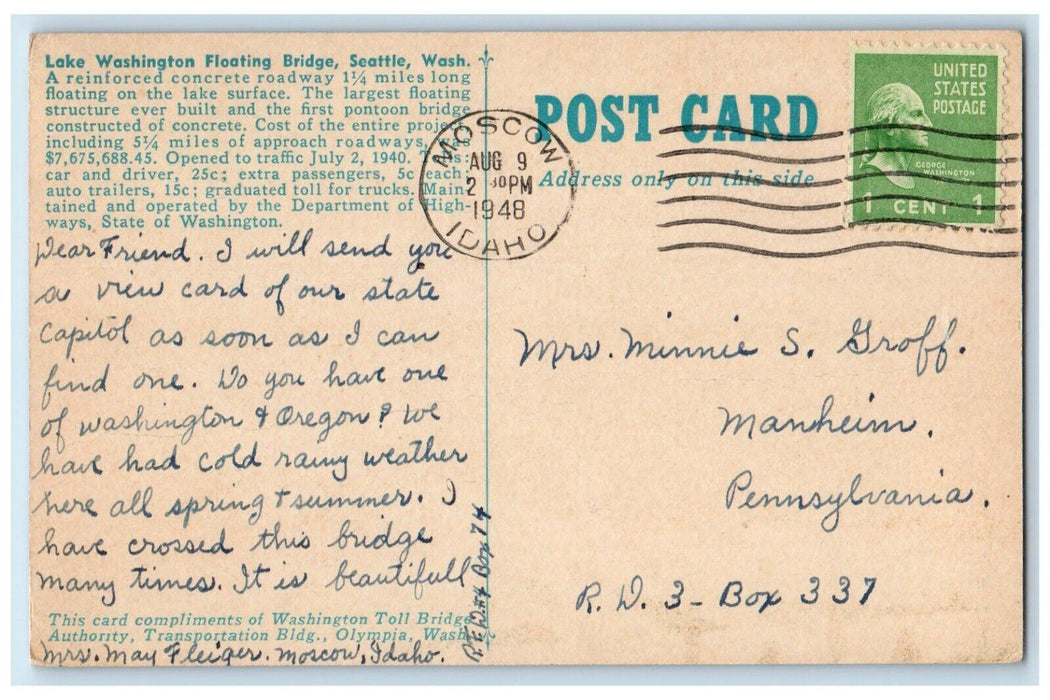 Lake Washington Floating Bridge, Seattle, Wash.
A reinforced concrete roadway 1¼ miles long
floating on the lake surface. The largest floating
structure ever built and the first pontoon bridge
constructed of concrete. Cost of the entire project
including 5¼ miles of approach roadways, was
$7,675,688.45. Opened to traffic July 2, 1940. Tolls:
car and driver, 25c; extra passengers, 5c each;
auto trailers, 15c; graduated toll for trucks. Main-
tained and operated by the Department of High-
ways, State of Washington.
Dear Friend. I will send you
a view card of our state
Capitol as soon as I can
find one. Do you have one
of Washington & Oregon? We
have had cold rainy weather
here all spring + summer. I
have crossed this bridge
many times. It is beautifull
This card compliments of Washington Toll Bridge
Authority, Transportation Bldg., Olympia, Wash.
Mrs. May Fleiger. Moscow, Idaho.
R.F.D. #4 Box 74
POST CARD
Address only on this side
MOSCOW
AUG 9
2 30 PM
1948
IDAHO
UNITED
STATES
POSTAGE
GEORGE
WASHINGTON
1 CENT 1
Mrs. Minnie S. Groff.
Manheim.
Pennsylvania.
R.D. 3 - Box 337